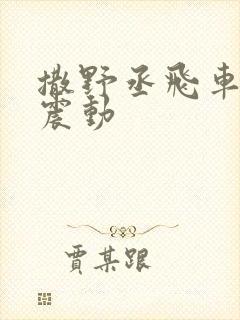 撒野丞飛車
震動
賈某跟